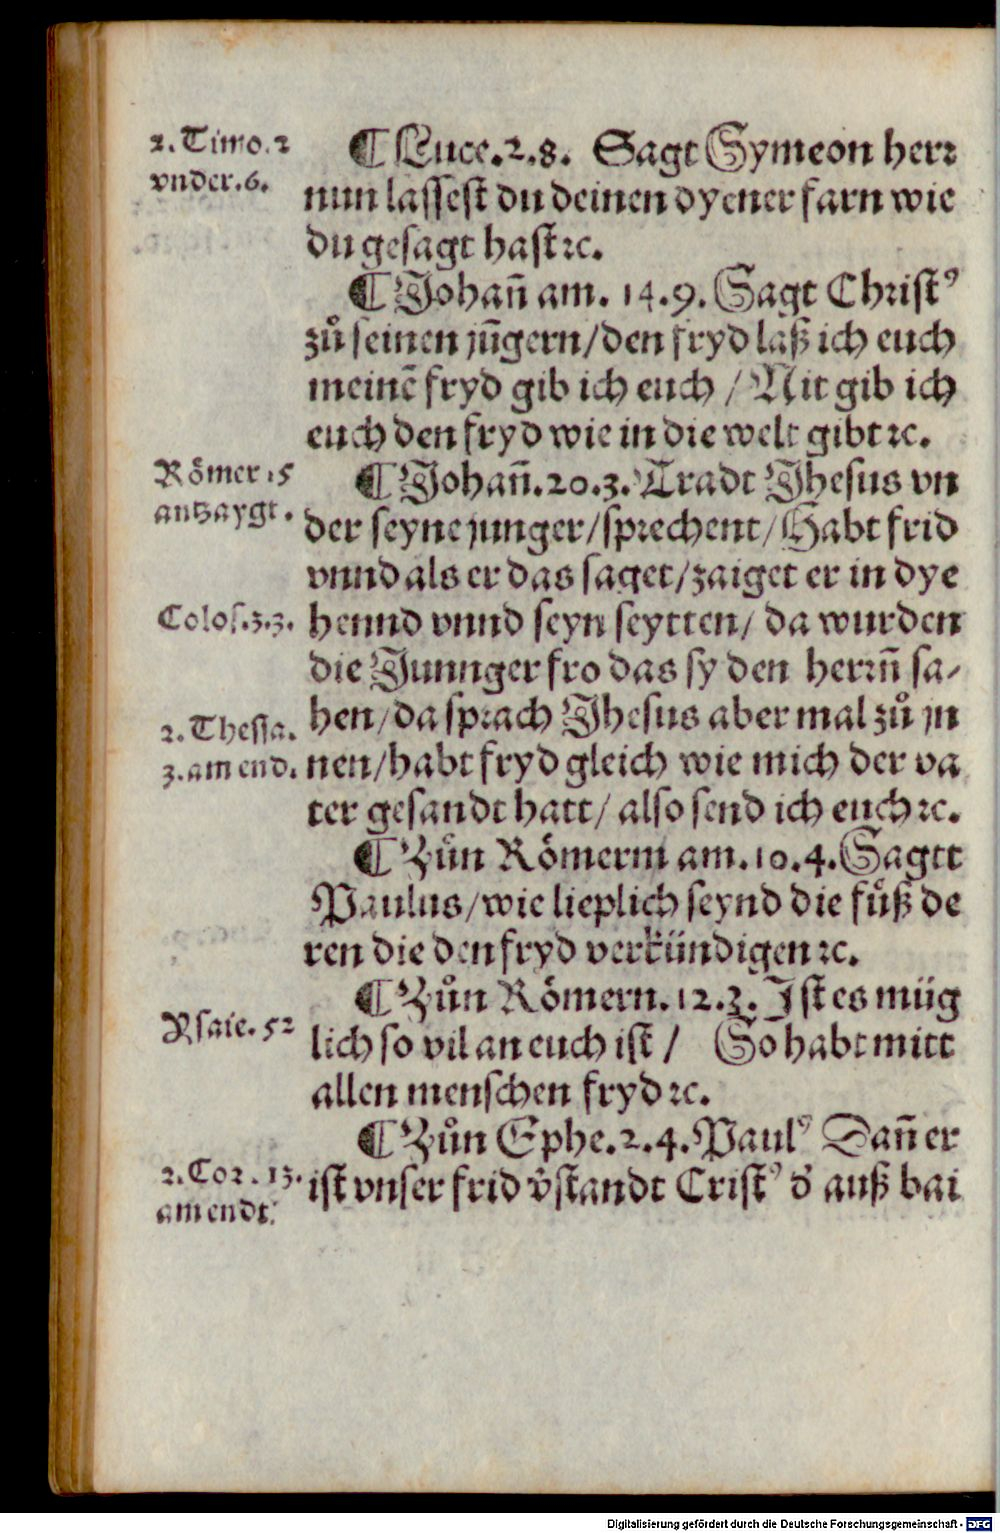 2. Timo. 2
vnder. 6.
¶ Luce. 2. 8. Sagt Symeon herr
nun lassest du deinen dyener farn wie
du gesagt hast ꝛc.
¶ Johañ am. 14. 9. Sagt Christꝰ
zů seinen jūgern/den fryd laß ich euch
meinē fryd gib ich euch / Nit gib ich
euch den fryd wie in die welt gibt ꝛc.
Römer 15
antzaygt.
¶ Johañ. 20. 3. Tradt Jhesus vn
der seyne junger/sprechent/Habt frid
vnnd als er das saget/zaiget er in dye
Colos. 3. 3.
hennd vnnd seyn seytten/ da wurden
die Junnger fro das sy den herrn̄ sa-
2. Thessa.
3. am end.
hen/da sprach Jhesus aber mal zů jn
nen/habt fryd gleich wie mich der va
ter gesandt hatt/ also send ich euch ꝛc.
¶ Zůn Römerm am. 10. 4. Sagtt
Paulus/wie lieplich seynd die fůß de
ren die den fryd verkündigen ꝛc.
¶ Zůn Römern. 12. 3. Ist es müg
Ysaie. 52
lich so vil an euch ist / So habt mitt
allen menschen fryd ꝛc.
¶ Zůn Ephe. 2. 4. Paulꝰ Dañ er
2. Cor. 13.
am endt.
ist vnser frid v̄standt Cristꝰ d̄ auß bai
Digitalisierung gefördert durch die Deutsche Forschungsgemeinschaft - DFG